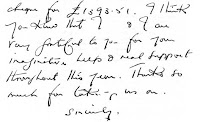 cheque for £1393.51. I think
you know that I & I are
very grateful to you for your
imaginative help & real support
throughout this year. Thanks so
much for taking us on.
Sincerely,